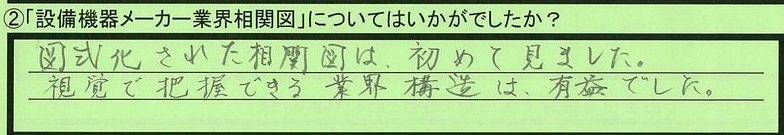 ②「設備機器メーカー業界相関図」についてはいかがでしたか？
図式化された相関図は、初めて見ました。
視覚で把握できる業界構造は、有益でした。